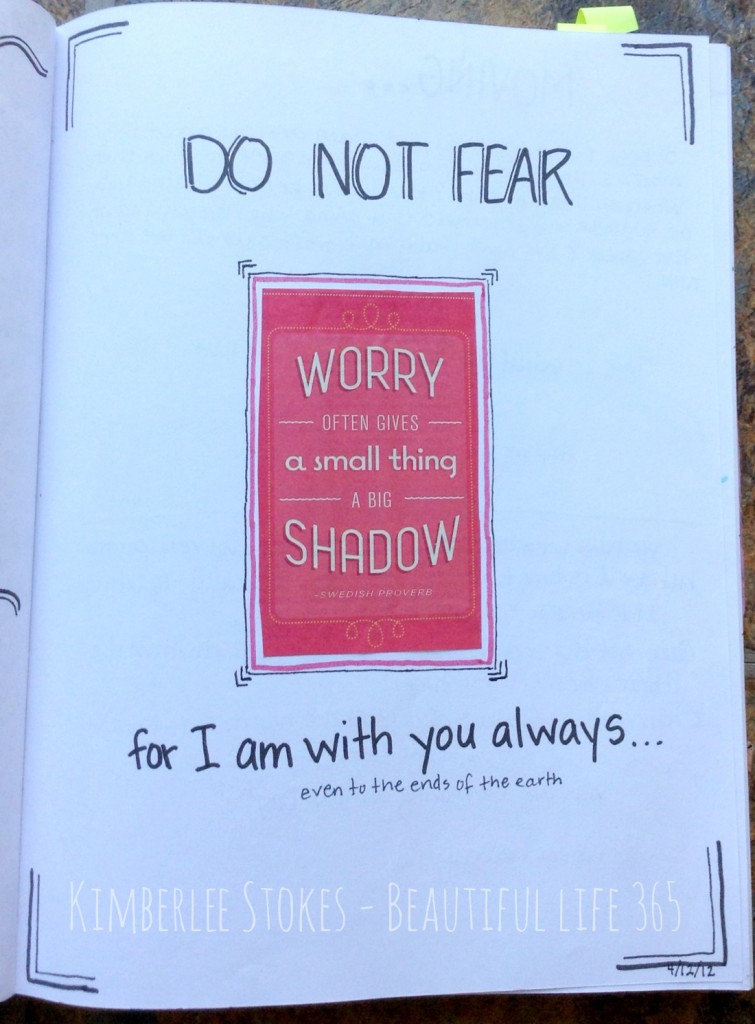 MOVING...
DO NOT FEAR
WORRY
OFTEN GIVES
a small thing
A BIG
SHADOW
-SWEDISH PROVERB
for I am with you always...
even to the ends of the earth
KIMBERLEE STOKES - BEAUTIFUL LIFE 365
4/12/12